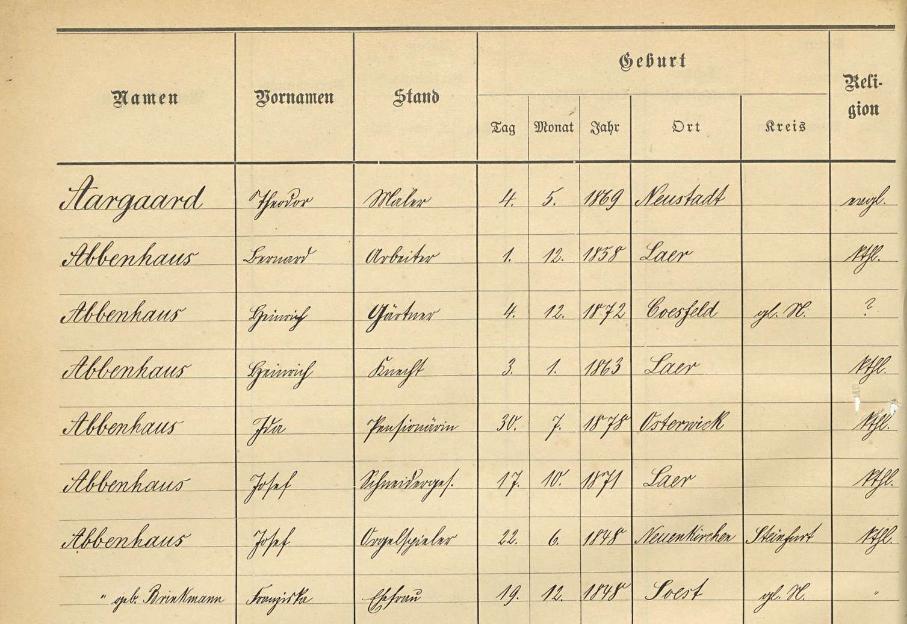 Namen Vornamen Stand Geburt Reli-
gion
Tag Monat Jahr Ort Kreis
Aargaard Theodor Maler 4. 5. 1869 Neustadt evgl.
Abbenhaus Bernard Arbeiter 1. 12. 1858 Laer kthl.
Abbenhaus Heinrich Gärtner 4. 12. 1872 Coesfeld gl. N. ?
Abbenhaus Heinrich Knecht 3. 1. 1863 Laer kthl.
Abbenhaus Ida Pensionärin 30. 7. 1878 Osterwick kthl.
Abbenhaus Josef Schneiderges. 17. 10. 1871 Laer kthl.
Abbenhaus Josef Orgelspieler 22. 6. 1848 Neuenkirchen Steinfurt kthl.
" geb. Brinkmann Franziska Ehefrau 19. 12. 1848 Soest gl. N. "